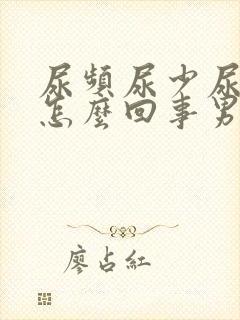 尿頻尿少尿
怎麼回事男
廖占紅